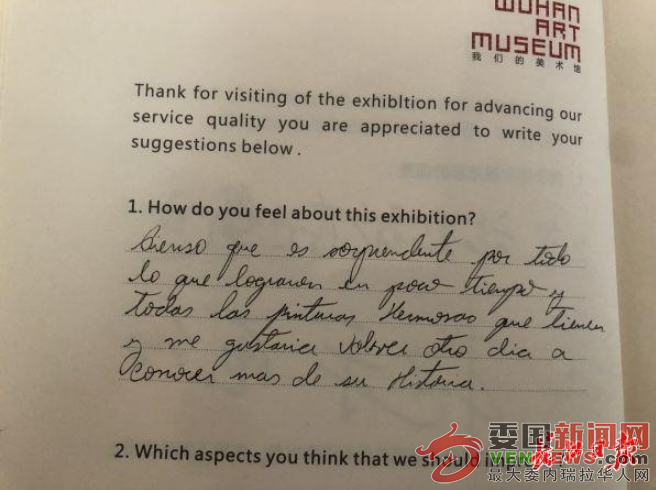 WUHAN
ART
MUSEUM
我们的美术馆
Thank for visiting of the exhibltion for advancing our
service quality you are appreciated to write your
suggestions below .
1. How do you feel about this exhibition?
Pienso que es sorprendente por todo
lo que lograron en poco tiempo y
todas las pinturas Hermosas que tienen
y me gustaria volver otro dia a
conocer mas de su Historia.
2. Which aspects you think that we should impro
委国新闻网
VENEWS
最大委内瑞拉华人网